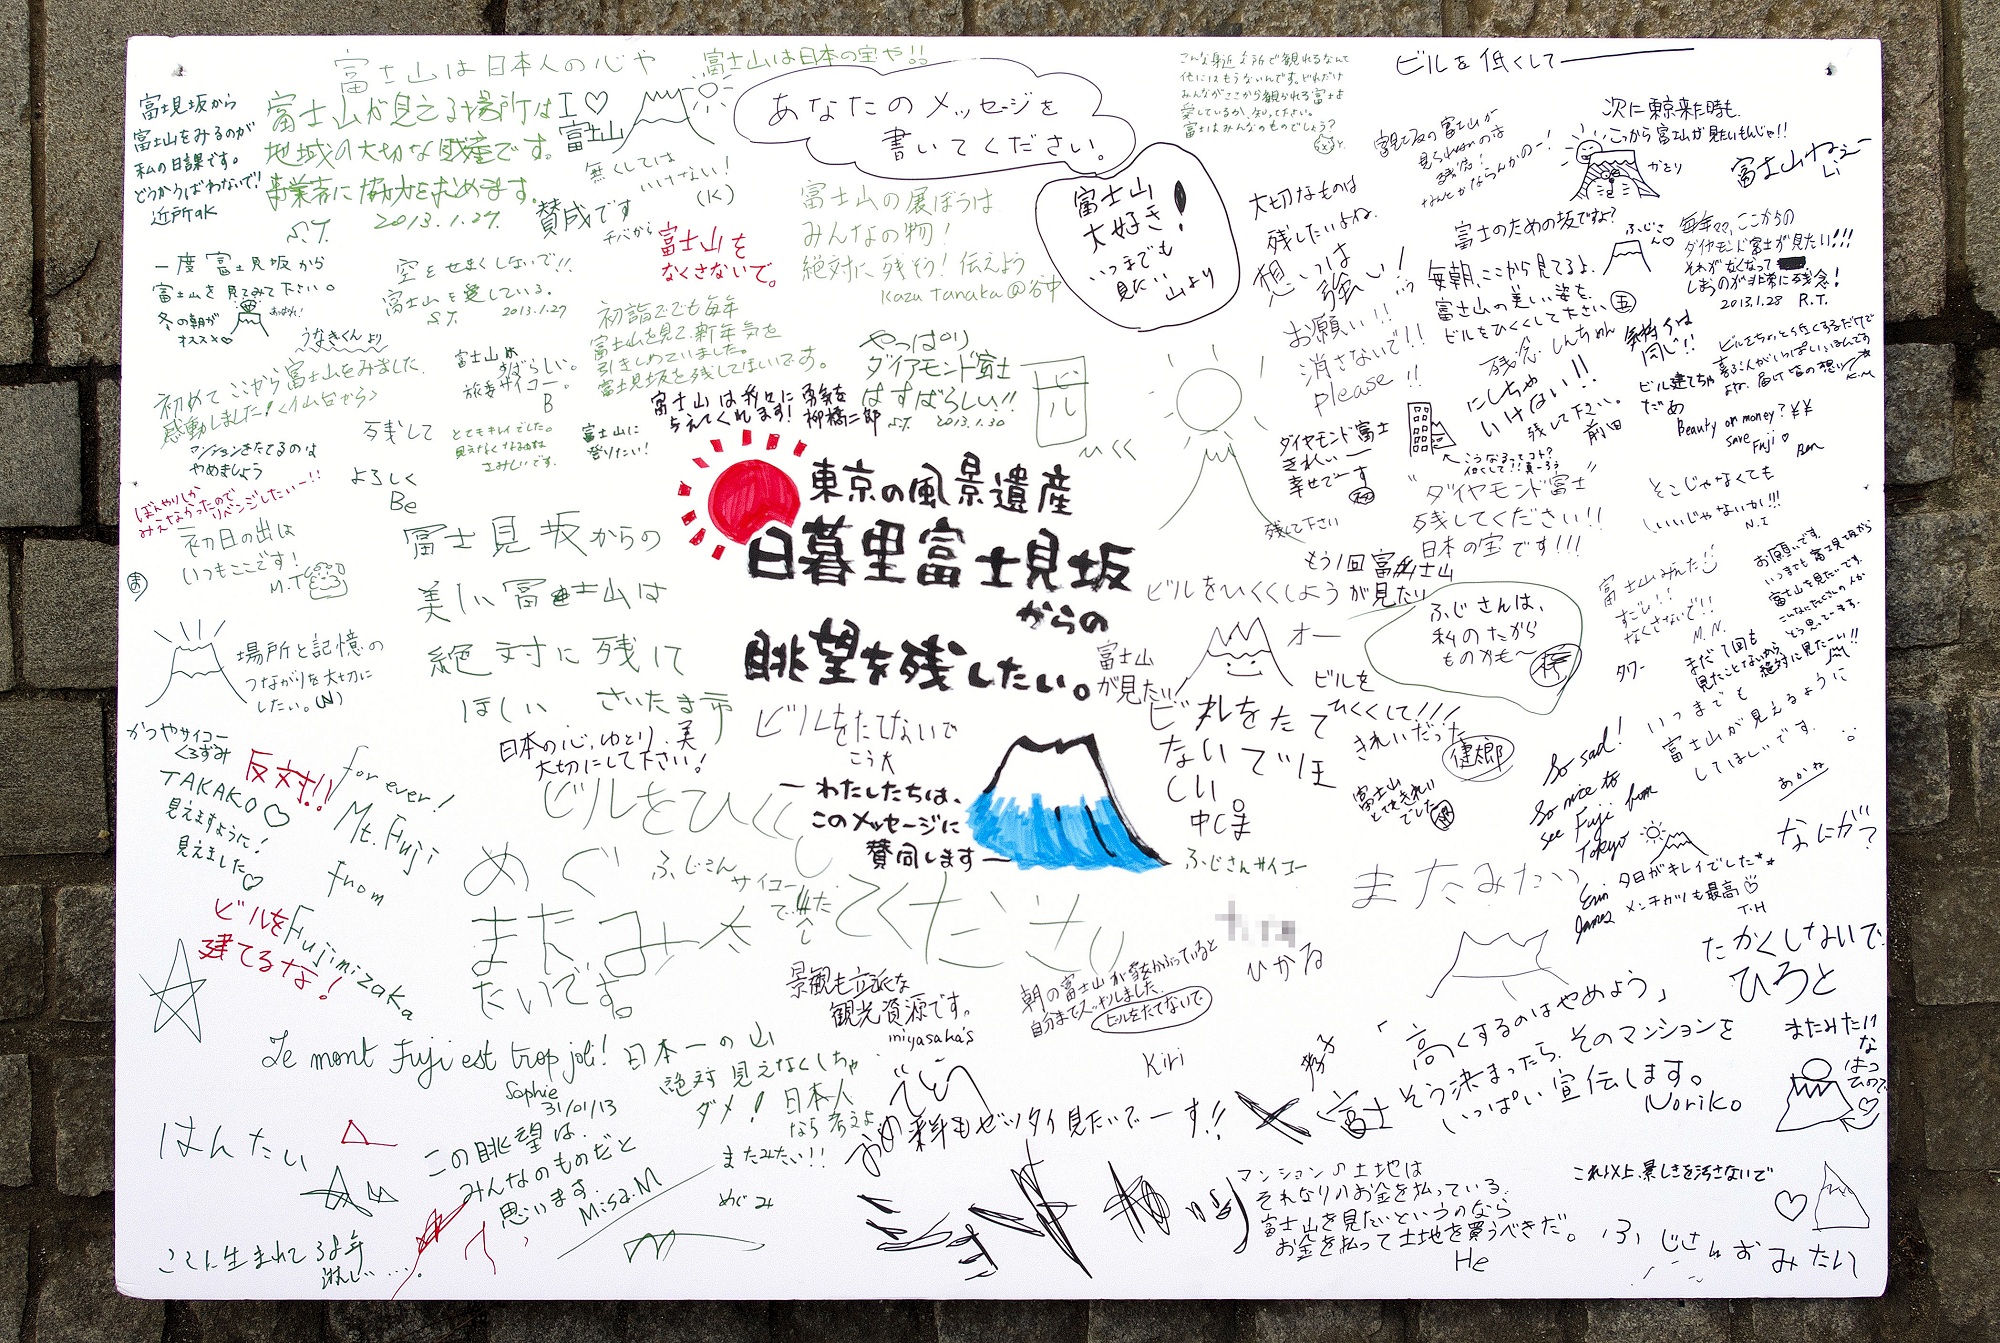 富士山は日本人の心や
富士山は日本の宝や!!
富士見坂から
富士山をみるのが
私の日課です。
どうかうばわないで!!
近所のK
富士山が見える場所は
地域の大切な財産です。
事業者に協力を求めます。
S.T. 2013.1.27.
I♡
富士山
無くしては
いけない!
(K)
賛成です
チバから
富士山を
なくさないで。
あなたのメッセージを
書いてください。
富士山の展ぼうは
みんなの物!
絶対に残そう!伝えよう
Kazu Tanaka@谷中
富士山
大好き!
いつまでも
見たい
山より
こんな身近な所で観れるなんて
他にはもうないんです。どれだけ
みんながここから観られる富士を
愛しているか、知って下さい。
富士はみんなのものでしょう?
ビルを低くして
富士見坂の富士山が
見られないのは
残念!
なんとかならんかのー!
次に東京来た時も、
ここから富士山が見たいもんじゃ!!
かさり
富士山ねぇー
大切なものは
残したいよね。
想いは
強い!
富士のための坂ですよ?
ふじさん♡
毎年ココ、ここからの
ダイヤモンド富士が見たい!!!
それがなくなって
しまうのが非常に残念!
2013.1.28 R.T.
毎朝、ここから見てるよ、
富士山の美しい姿を、
ビルをひくくして下さい
五
一度富士見坂から
富士山を見てみて下さい。
冬の朝が
オススメ♡
うなきくんより
空をせまくしないで!!
富士山を愛している。
S.T. 2013.1.27
初詣ででも毎年
富士山を見て新年気を
引きしめていました。
富士見坂を残してほしいです。
富士山は
すばらしい。
旅委サイコー。
B
やっぱり
ダイアモンド富士
はすばらしい!!
S.T. 2013.1.30
ビル
富士山は我々に勇気を
与えてくれます! 柳橋二郎
初めてここから富士山をみました。
感動しました!<仙台から>
マンションをたてるのは
やめましょう
残して
とてもキレイでした。
見えなくなるのは
さみしいです。
富士山に
登りたい!
お願い!!
消さないで!!
please!!
残念 しんちゃん
にしちゃ
いけない!!
残して下さい。
前田
気持ちは
同じ!!
ビル建てちゃ
だめ
K.M
Beauty or money? ¥¥
save
Fuji ♡
Ben
ダイヤモンド富士
きれいー
幸せでーす
残して下さい
こうなるってコト?
"ダイヤモンド富士"
残してください!!
日本の宝です!!!
そこじゃなくても
いいじゃないか!!!
N.I
ぼんやりしか
みえなかったので
リベンジしたいー!!
よろしく
Be
初日の出は
いつもここです!
M.T
富士見坂からの
美しい富士山は
絶対に残して
ほしい さいたま市
東京の風景遺産
日暮里富士見坂
からの
眺望を残したい。
もう1回富士山
が見たい
ビルをひくくしよう
ふじさんは、
私のたから
ものかも〜
富士山みんた
すごい!!
なくさないで!!
M.N.
お願いです。
いつまでも富士見坂から
富士山を見たいです。
こんなにたくさんの人が
そう思っています。
タワー
まだ1回も
見たことないから
絶対に見たーい!!
富士山
が見たい
オー
ビルを
ひくくして!!!
きれいだった
健太郎
場所と記憶の
つながりを大切に
したい。(N)
かつやサイコー
くろずみ
TAKAKO♡
見えますように!
見えました♡
反対!!
for ever!
Mt. Fuji
from
Fujimizaka
ビルを
建てるな!
日本の心、ゆとり、美
大切にして下さい!
ビルをたてないで
こう大
ビルをひくくし
てください
わたしたちは、
このメッセージに
賛同します
ビルをたて
ないでほ
しい。
中じま
富士山
とてもきれい
でした
ふじさんサイコー
So sad!
So nice to
see Fuji from
Tokyo
Erin
James
いつまでも
富士山が見えるように
してほしいです。
あかな
なにが?
夕日がキレイでした**
メンチカツも最高♡
T.H
またみたい
めぐ
ふじさん
サイコー
でした
またみ
たいです。
景観も立派な
観光資源です。
miyasaka's
朝の富士山が雪をかぶっていると
自分までスッキリしました。
ビルをたてないで
ひかる
たかくしないで
ひろと
Le mont Fuji est trop joli!
Sophie
31/01/13
日本一の山
絶対見えなくしちゃ
ダメ! 日本人
なら考えよ
またみたい!!
めぐみ
Kiri
「高くするのはやめよう」
そう決まったら、そのマンションを
いっぱい宣伝します。
Noriko
またみたい
な
はつ
ひので
♡
はんたい
この眺望は、
みんなのものだと
思います
Misa.M
ここに生まれて38年
淋しい….
来年もゼッタイ見たいでーす!!
富士
マンションの土地は
それなりのお金を払っている。
富士山を見たいというのなら
お金を払って土地を買うべきだ。
He
これ以上、景しきを汚さないで
ふじさんおみたい